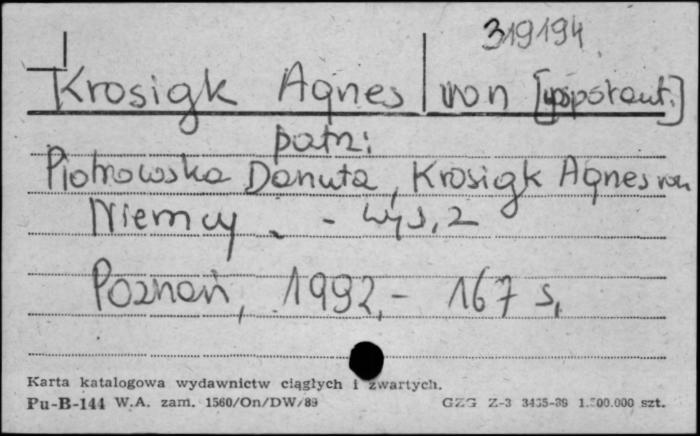 319194
Krosigk Agnes von [współaut.]
patrz:
Piotrowska Danuta, Krosigk Agnes von
Niemcy. - Wyd. 2
Poznań, 1992. - 167 s.
Karta katalogowa wydawnictw ciągłych i zwartych.
Pu-B-144 W.A. zam. 1560/On/DW/89 GZG Z-3 3435-89 1.500.000 szt.